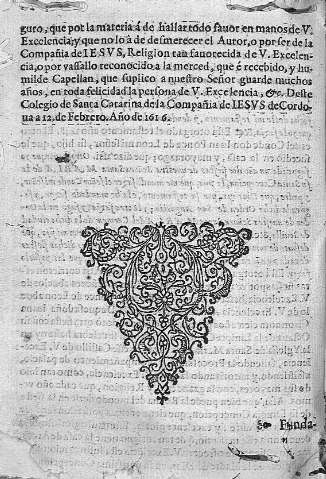 guro, que por la materia à de hallar todo fauor en manos de V.
Excelencia; y que no lo à de desmerecer el Autor, o por ser de la
Compañia de IESVS, Religion tan fauorecida de V. Excelen-
cia, o por vassallo reconocido a la merced, que é recebido, y hu-
milde Capellan, que suplico a nuestro Señor guarde muchos
años, en toda felicidad la persona de V. Excelencia, &c. Deste
Colegio de Santa Catarina de la Compañia de IESVS de Cordo-
ua a 12. de Febrero. Año de 1616.
Funda-